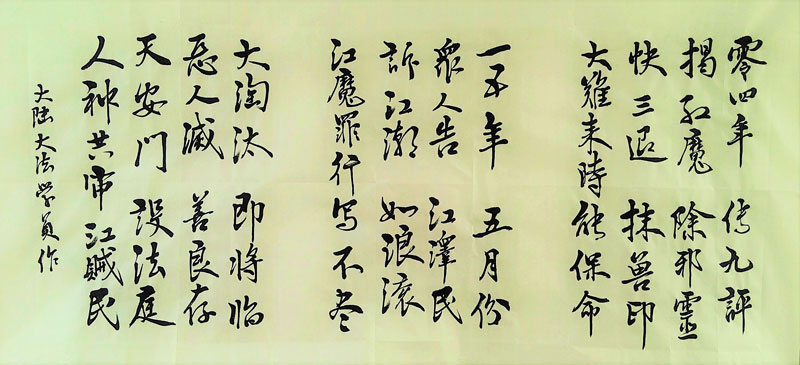 零四年 传九評
揭红魔 除邪靈
快三退 抹兽印
大难来時能保命
一五年 五月份
眾人告 江澤民
訴江潮 如浪滚
江魔罪行写不尽
大淘汰 即将临
恶人滅 善良存
天安门 設法庭
人神共审江贼民
大陆大法学员作